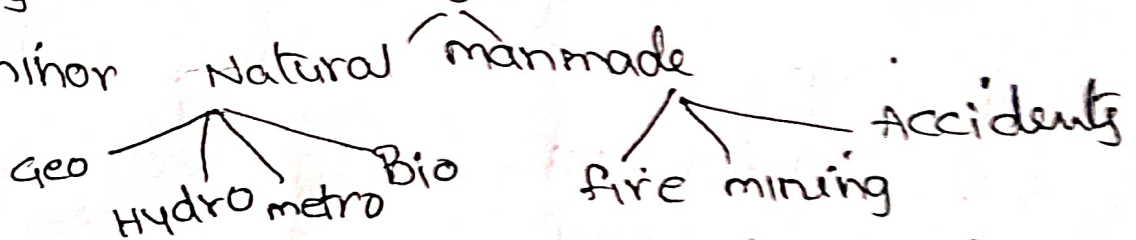 minor Natural manmade
Geo Hydro metro Bio fire mining Accidents